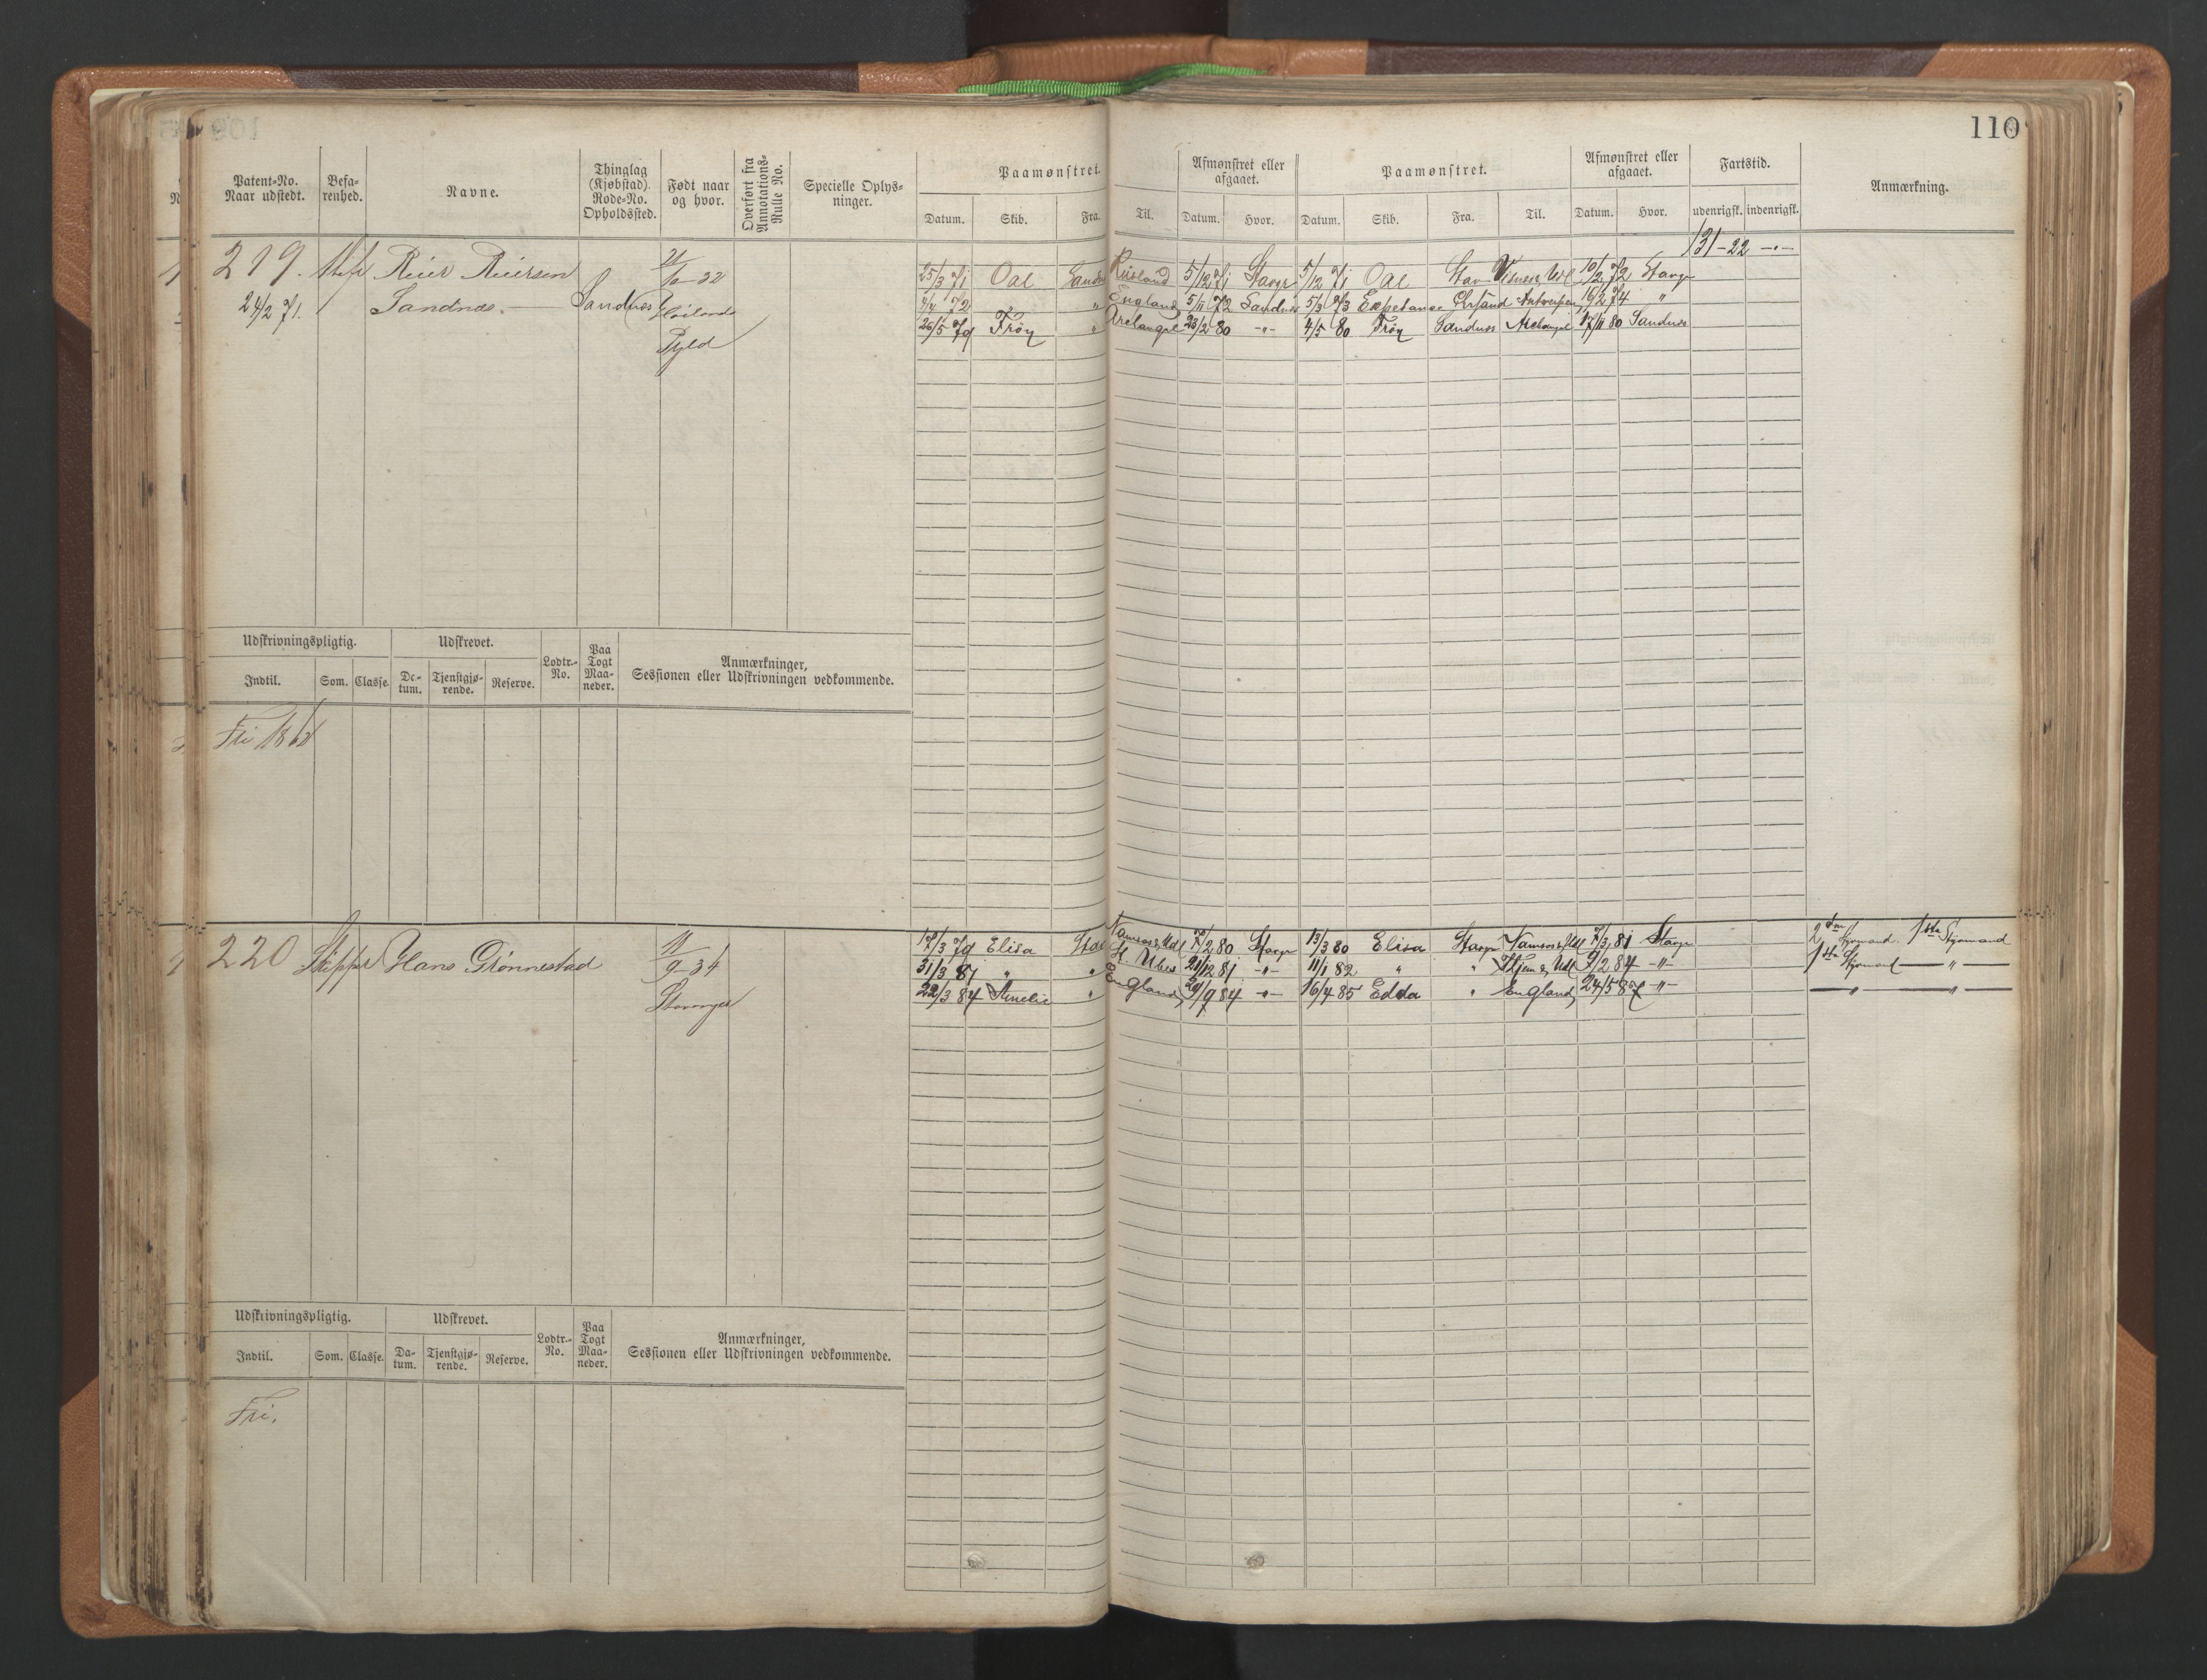 110
Patent-No.
Naar udstedt.
Befa-
renhed.
Navne.
Thinglag
(Kjøbstad).
Rode-No.
Opholdssted.
Født naar
og hvor.
Overført fra
Annotations-
Rulle No.
Specielle Oplys-
ninger.
Paamønstret.
Datum. Skib. Fra. Til.
Afmønstret eller
afgaaet.
Datum. Hvor.
Paamønstret.
Datum. Skib. Fra. Til.
Afmønstret eller
afgaaet.
Datum. Hvor.
Fartstid.
udenrigsk. indenrigsk.
Anmærkning.
131-22 -"-
219. Reier Reiersen
24/2 71. Sandnæs. Sandnæs
Høiland
25/3 71 Oal Sandn Rusland 5/12 71 Stavgr 5/12 71 Oal Stav 10/2 72 Stavgr
4/4 72 " " England 5/11 72 Sandnæs 5/3 73 Expetance Chrsand Antverpen 16/2 74 "
26/5 79 Frøy " Archangel 23/2 80 -"- 4/5 80 Frøy Sandnæs Archangel 17/11 80 Sandnæs
Udskrivningspligtig. Udskrevet. Lodtr.-
No. Paa
Togt
Maa-
neder. Anmærkninger,
Sessionen eller Udskrivningen vedkommende.
Indtil. Som. Classe. Da-
tum. Tjenstgjø-
rende. Reserve.
Fri
220 Skipper Hans Grønnestad
9-34
Stavanger
79 Elisa Stav Namsos & Udl 80 Stavgr 13/3 80 Elisa Stavgr Namsos & Udl 81 Stavgr 2den Styrmand 1ste Styrmand
31/3 81 " " St. Ubes 21/12 81 -"- 11/1 82 " " & Udl 9/2 84 -"- 1ste Styrmand — " —
22/3 84 Amelie " England 84 -"- 16/4 85 Edda " England 24/5 87 -"- — " — — " —
Udskrivningspligtig. Udskrevet. Lodtr.-
No. Paa
Togt
Maa-
neder. Anmærkninger,
Sessionen eller Udskrivningen vedkommende.
Indtil. Som. Classe. Da-
tum. Tjenstgjø-
rende. Reserve.
Fri.